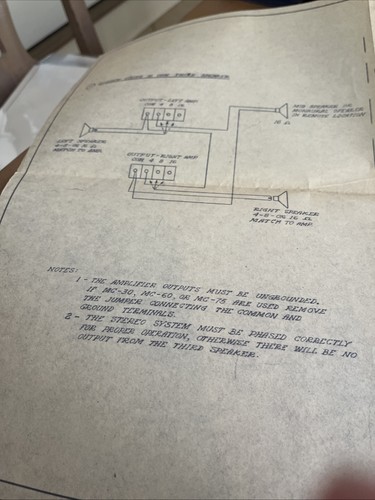 OUTPUT-LEFT AMP
COM 4 8 16
MID SPEAKER OR
MONAURAL SPEAKER
IN REMOTE LOCATION
16 Ω
LEFT SPEAKER
4-8-OR 16 Ω
MATCH TO AMP.
OUTPUT-RIGHT AMP
COM 4 8 16
RIGHT SPEAKER
4-8-OR 16 Ω
MATCH TO AMP.
NOTES:
1 - THE AMPLIFIER OUTPUTS MUST BE UNGROUNDED.
IF MC-30, MC-60, OR MC-75 ARE USED REMOVE
THE JUMPER CONNECTING THE COMMON AND
GROUND TERMINALS.
2 - THE STEREO SYSTEM MUST BE PHASED CORRECTLY
FOR PROPER OPERATION, OTHERWISE THERE WILL BE NO
OUTPUT FROM THE THIRD SPEAKER.